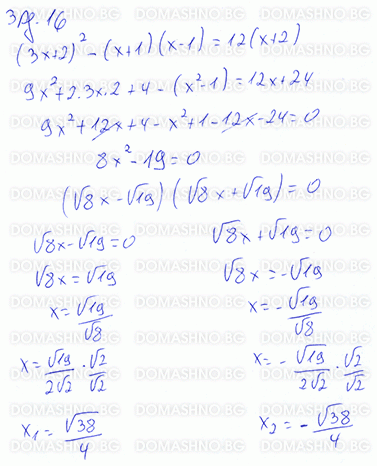 Зад. 16
(3x+2)² - (x+1)(x-1) = 12(x+2)
9x² + 2.3x.2 + 4 - (x²-1) = 12x + 24
9x² + 12x + 4 - x² + 1 - 12x - 24 = 0
8x² - 19 = 0
(√8x - √19)(√8x + √19) = 0
√8x - √19 = 0 √8x + √19 = 0
√8x = √19 √8x = -√19
x = √19/√8 x = -√19/√8
x = √19/2√2 . √2/√2 x = -√19/2√2 . √2/√2
x₁ = √38/4 x₂ = -√38/4
DOMASHNO.BG